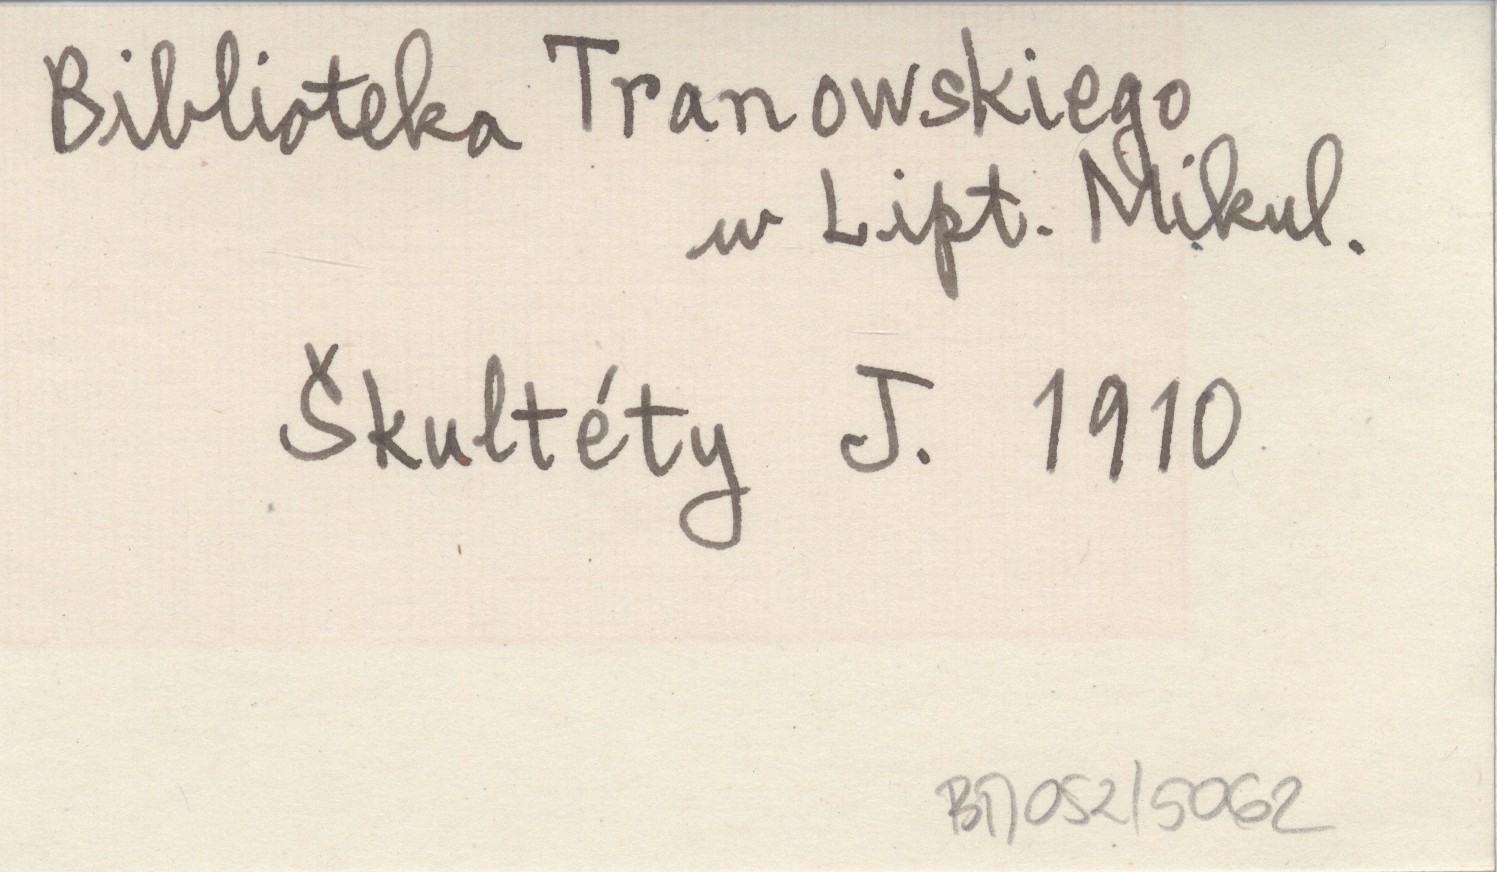 Biblioteka Tranowskiego
w Lipt. Mikul.
Škultéty J. 1910
052/5062